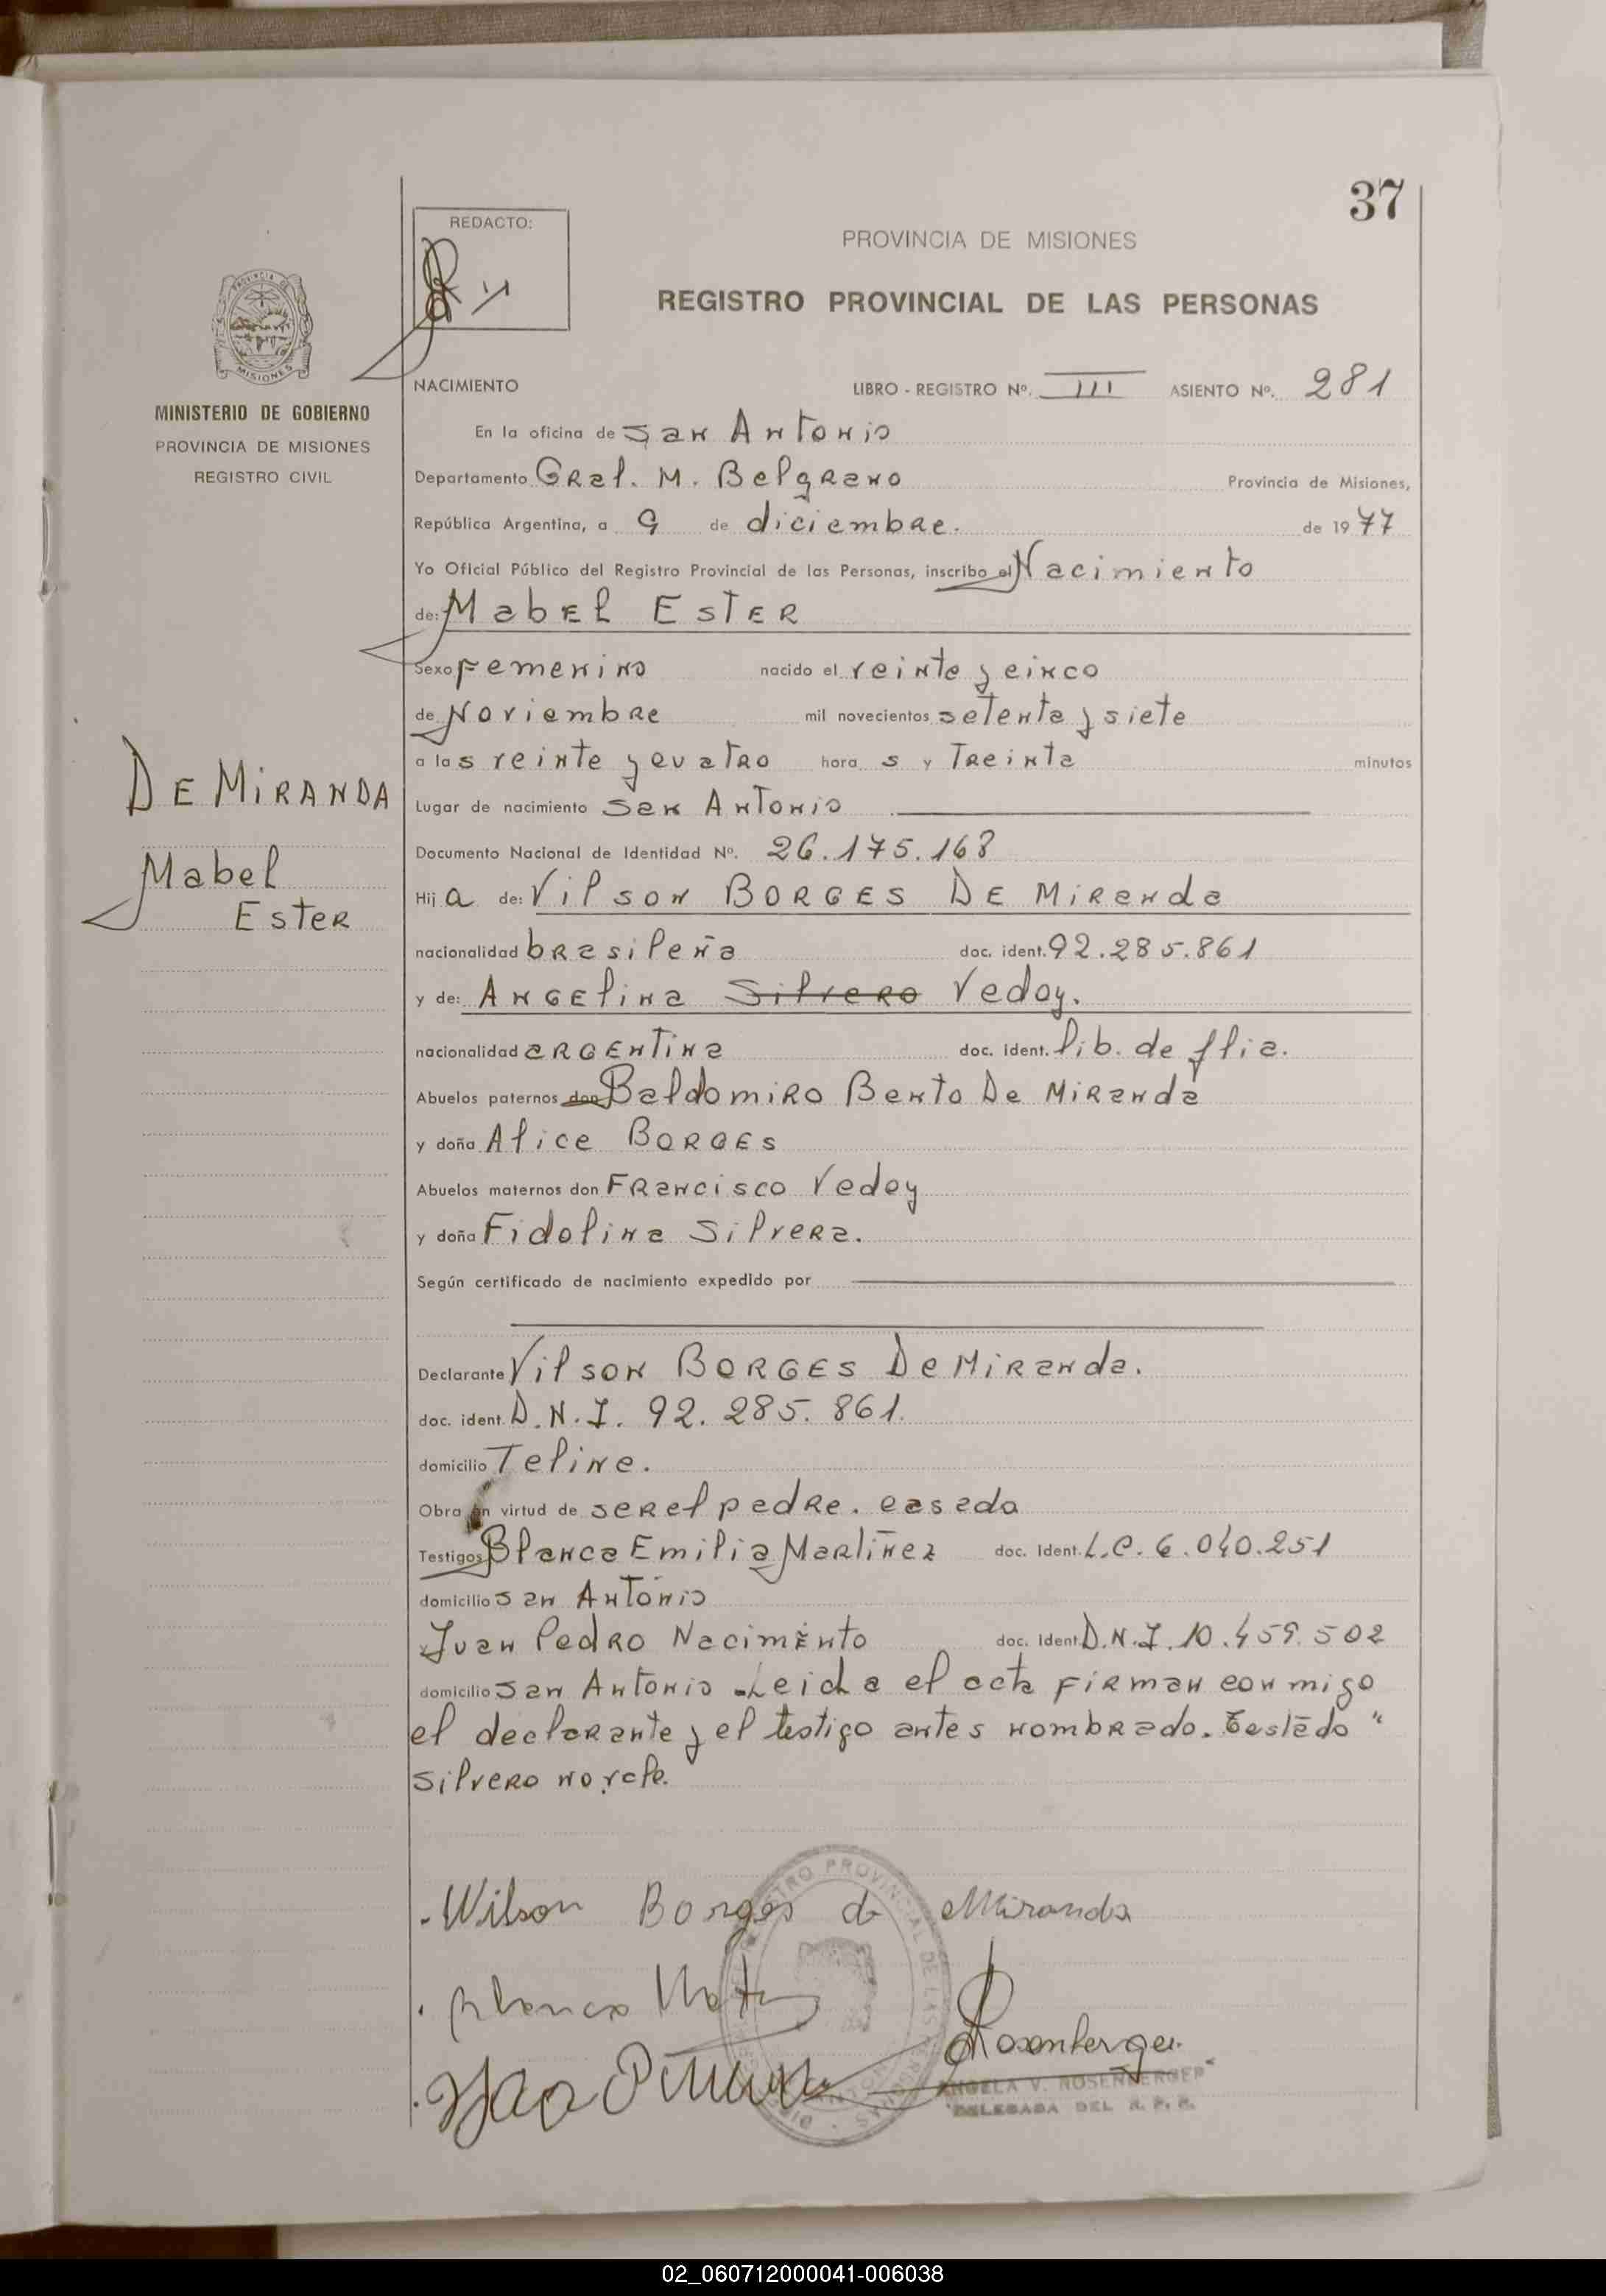 37
REDACTO:
PROVINCIA DE MISIONES
REGISTRO PROVINCIAL DE LAS PERSONAS
PROVINCIA DE
MISIONES
MINISTERIO DE GOBIERNO
PROVINCIA DE MISIONES
REGISTRO CIVIL
NACIMIENTO LIBRO - REGISTRO Nº. III ASIENTO Nº. 281
En la oficina de San Antonio
Departamento Gral. M. Belgrano Provincia de Misiones,
República Argentina, a 9 de diciembre. de 1977
Yo Oficial Público del Registro Provincial de las Personas, inscribo el Nacimiento
de: Mabel Ester
Sexo Femenino nacido el veinte y cinco
de Noviembre mil novecientos setenta y siete
a las veinte y cuatro hora s y Treinta minutos
DE MIRANDA
Mabel
Ester
Lugar de nacimiento San Antonio
Documento Nacional de Identidad Nº. 26.175.168
Hij a de: Vilson BORGES DE Miranda
nacionalidad brasileña doc. ident. 92.285.861
y de: Angelina Silvero Vedoy.
nacionalidad argentina doc. ident. lib. de flia.
Abuelos paternos don Baldomiro Bento De Miranda
y doña Alice BORGES
Abuelos maternos don Francisco Vedoy
y doña Fidolina Silvera.
Según certificado de nacimiento expedido por
Declarante Vilson BORGES De Miranda.
doc. ident. D.N.I. 92.285.861.
domicilio Teline.
Obra en virtud de ser el padre. casado
Testigos Blanca Emilia Martinez doc. Ident. L.C. 6.040.251
domicilio San Antonio
Juan Pedro Nacimento doc. Ident. D.N.I. 10.459.502
domicilio San Antonio - Leida el acta firman conmigo
el declarante y el testigo antes nombrado. Testado "
Silvero no vale.
Wilson Borges de Miranda
Blanca
Rosenberger
ANGELA V. ROSENBERGER
DELEGADA DEL R. P. P.
02_060712000041-006038